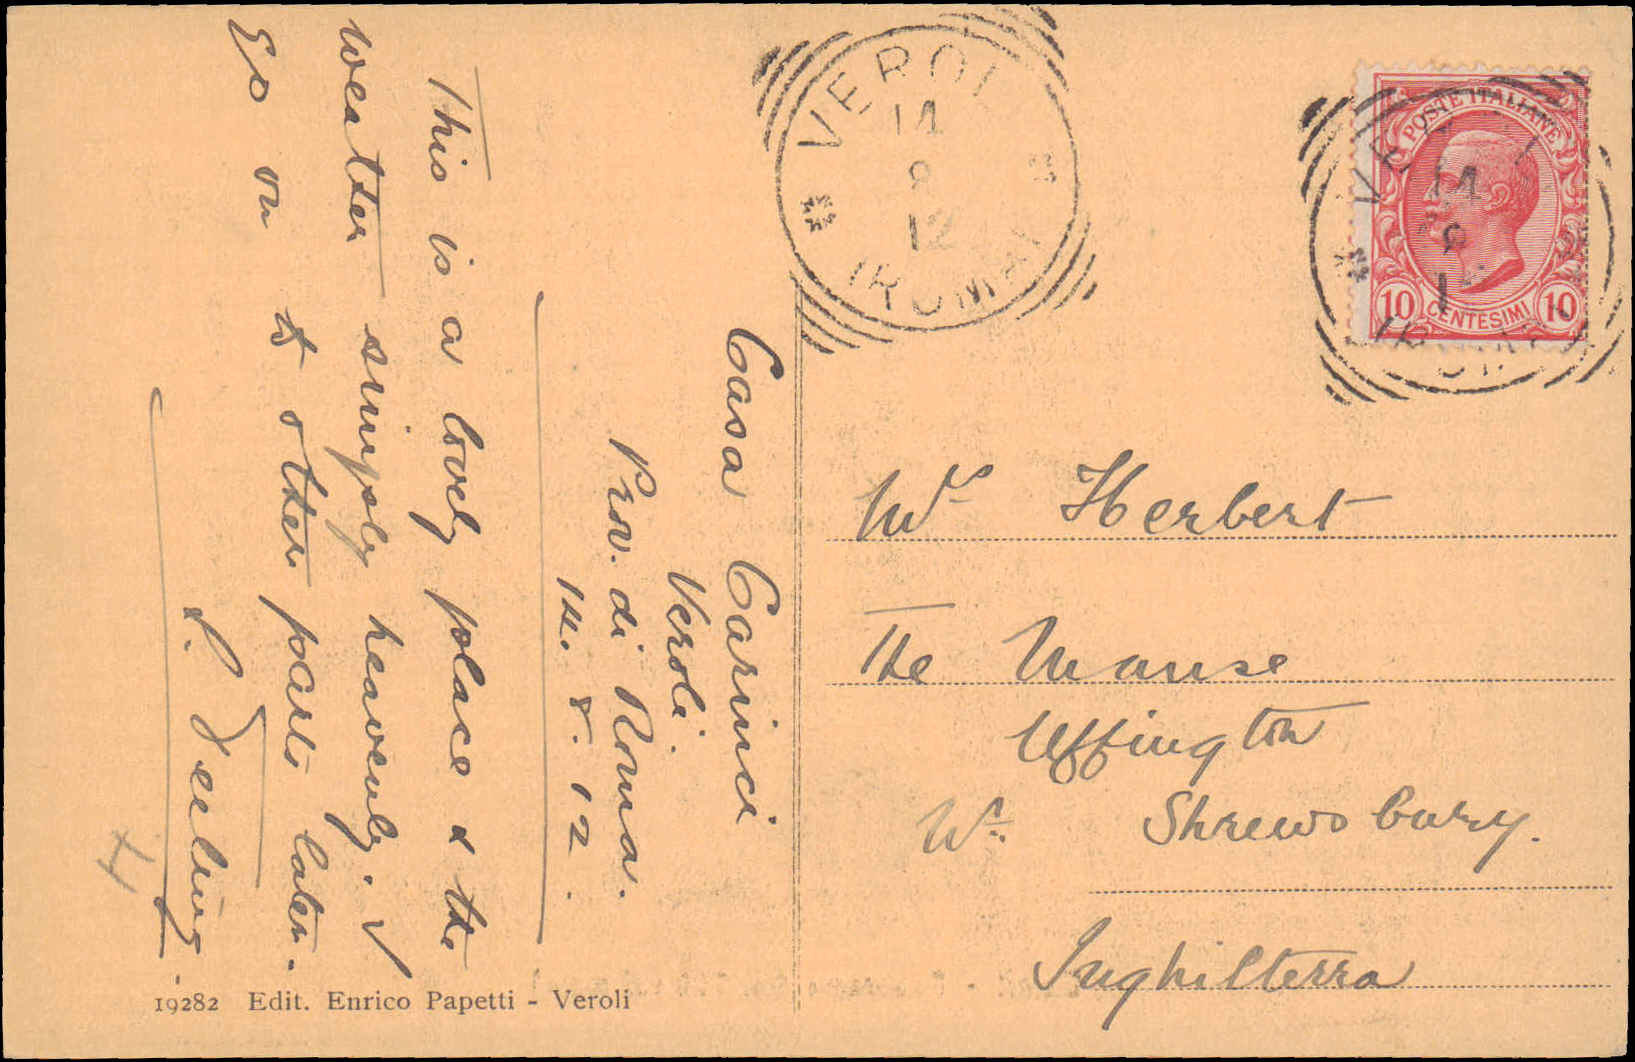 Casa Carinci
Veroli.
Prov. di Roma.
14. 8. 12.
This is a lovely place & the
weather simply heavenly. I
go on to other parts later.
VEROLI
14
8
12
(ROMA)
POSTE ITALIANE
10 CENTESIMI 10
VEROLI
14
8
12
(ROMA)
Mrs Herbert
The Manse
Uffington
Nr. Shrewsbury.
Inghilterra
19282 Edit. Enrico Papetti - Veroli